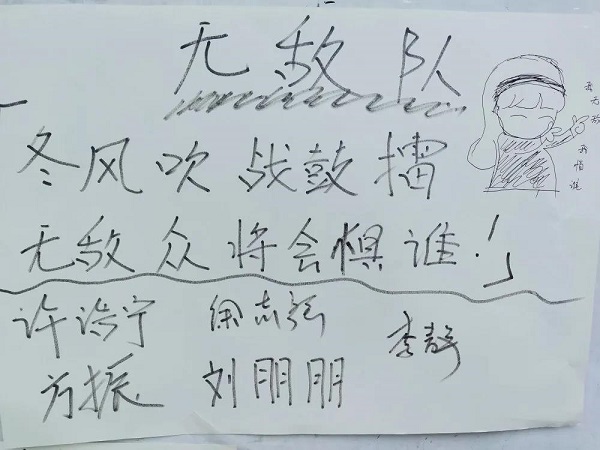 无敌队
冬风吹 战鼓擂
无敌众将会惧谁！」
许浩宁 徐志强 李静
方振 刘朋朋
若无敌
我怕谁